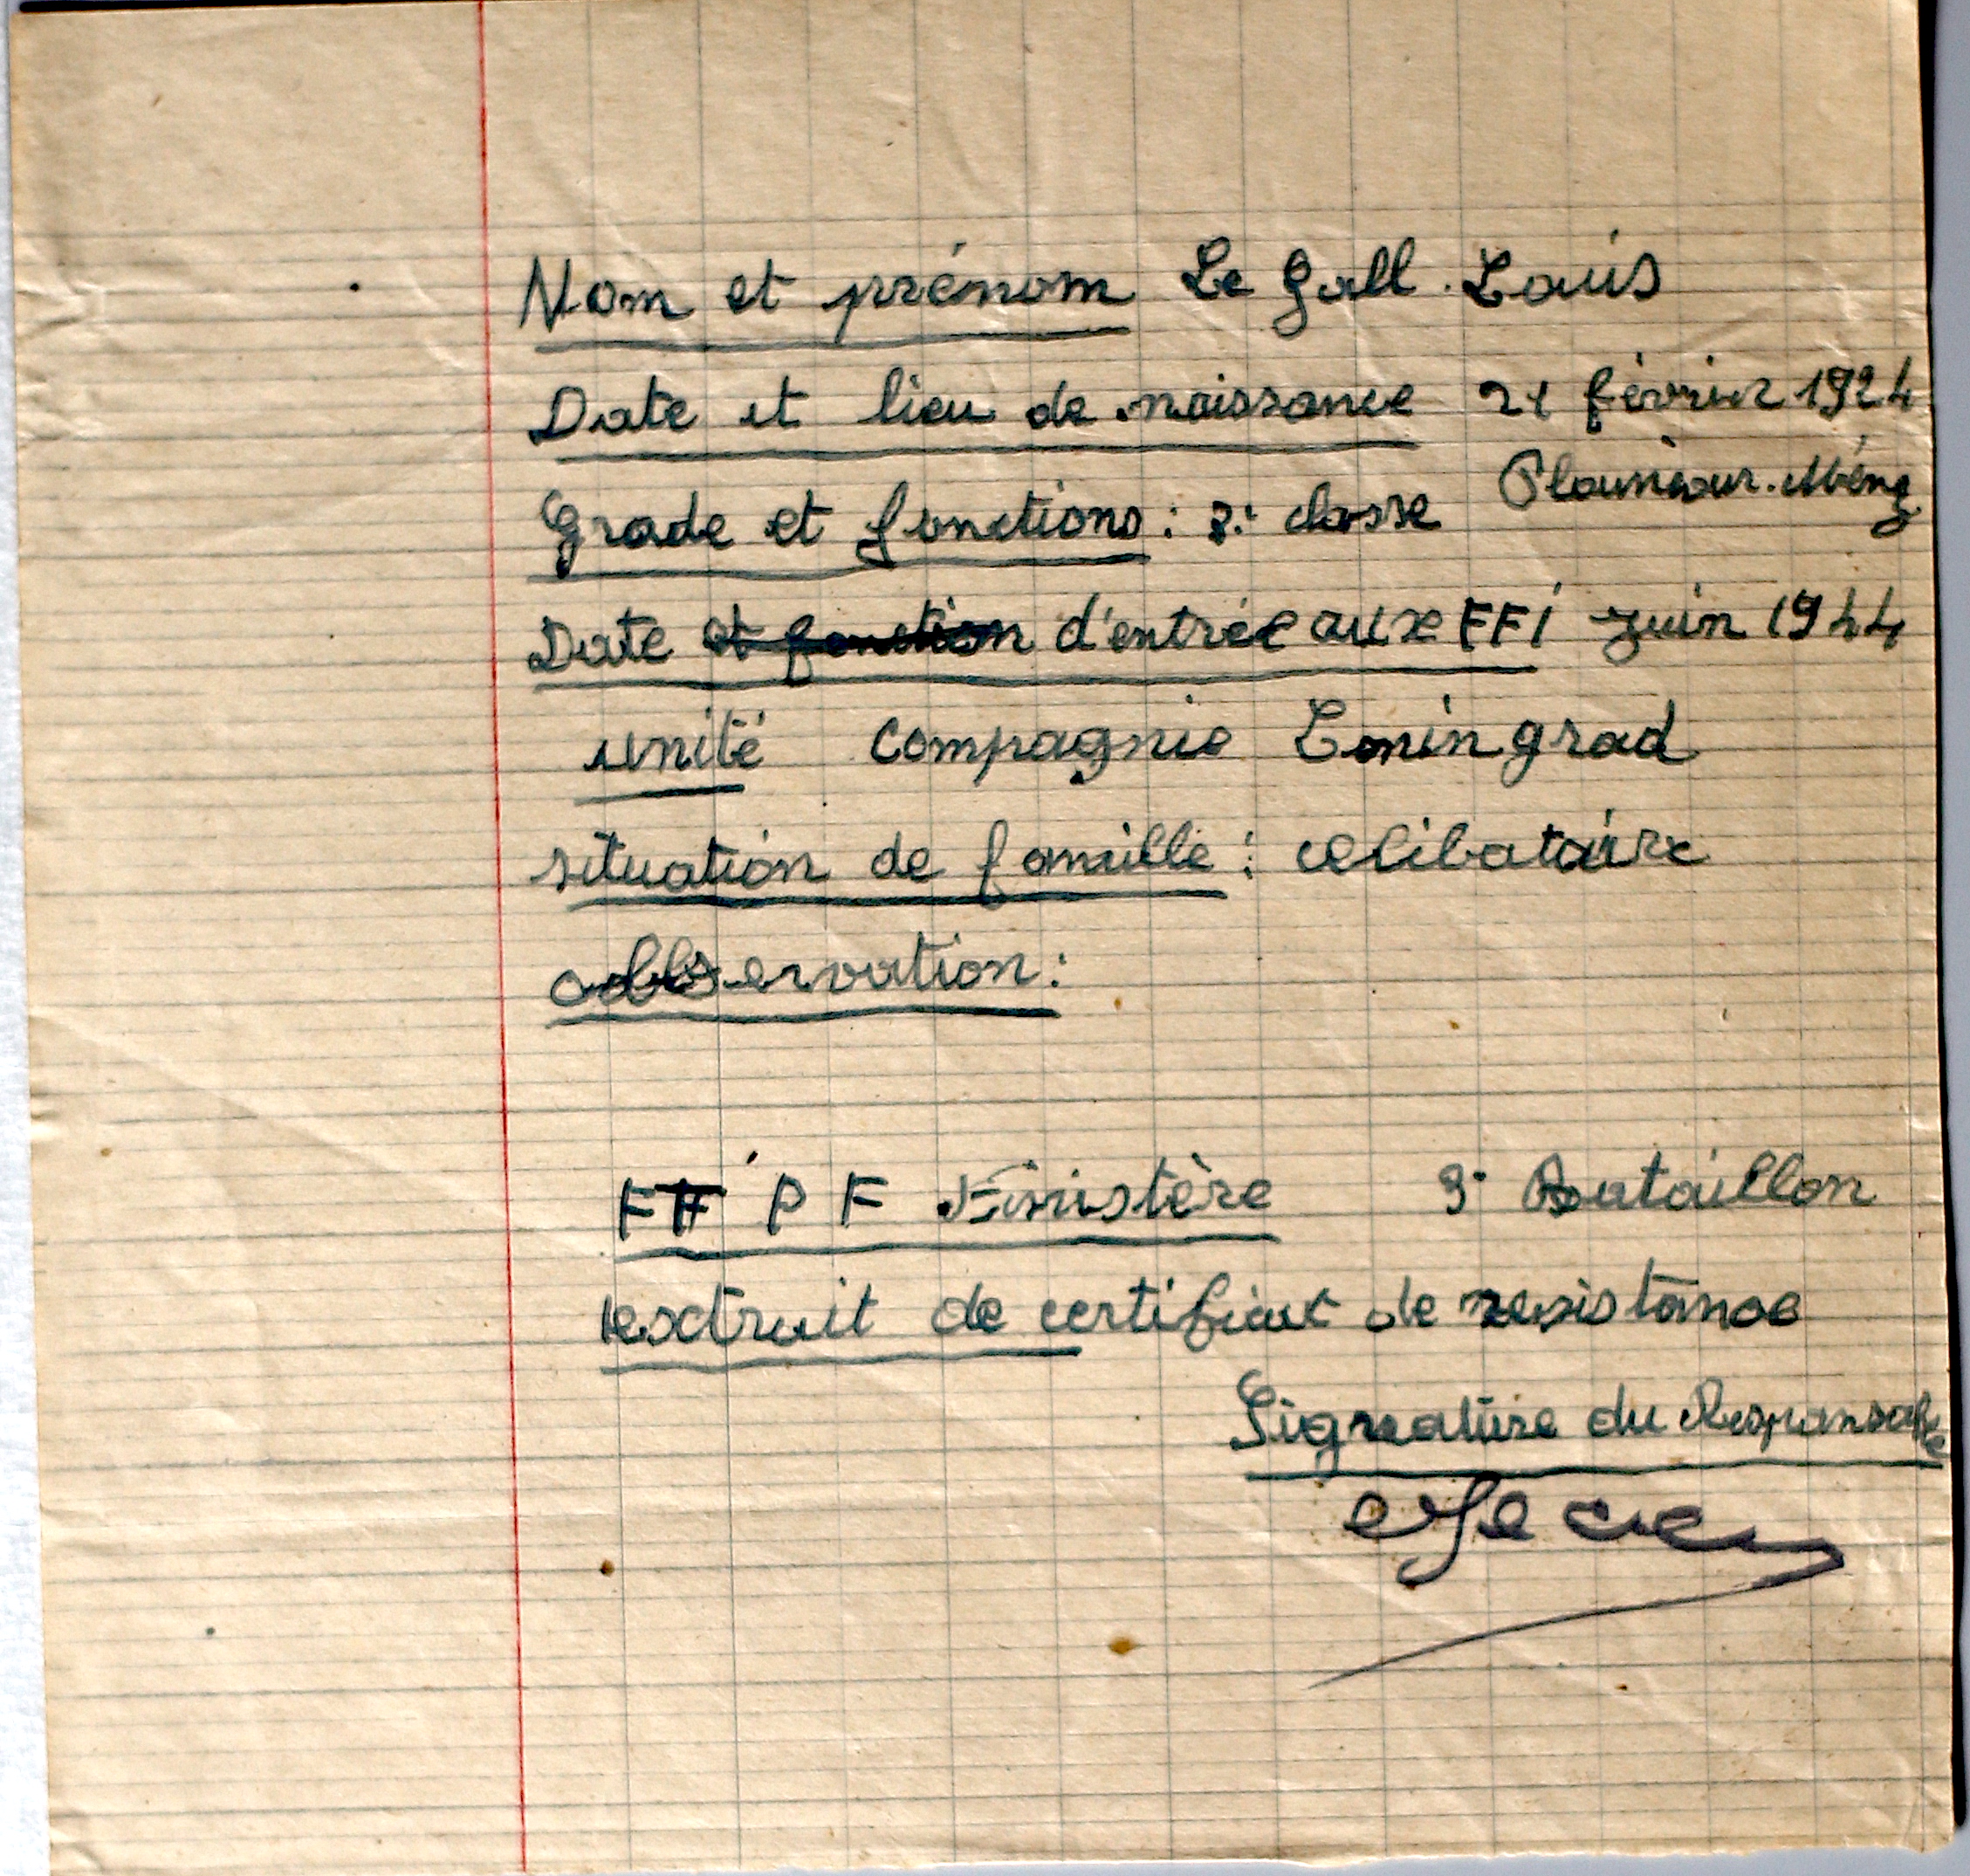 Nom et prénom Le Gall. Louis
Date et lieu de naissance 21 février 1924
Plounéour-Ménez
Grade et fonctions : 2e classe
Date et fonction d'entrée aux FFI juin 1944
unité compagnie Leningrad
situation de famille : celibataire
observation :
FTPF Finistère 3e Bataillon
extrait de certificat de resistance
Signature du Responsable